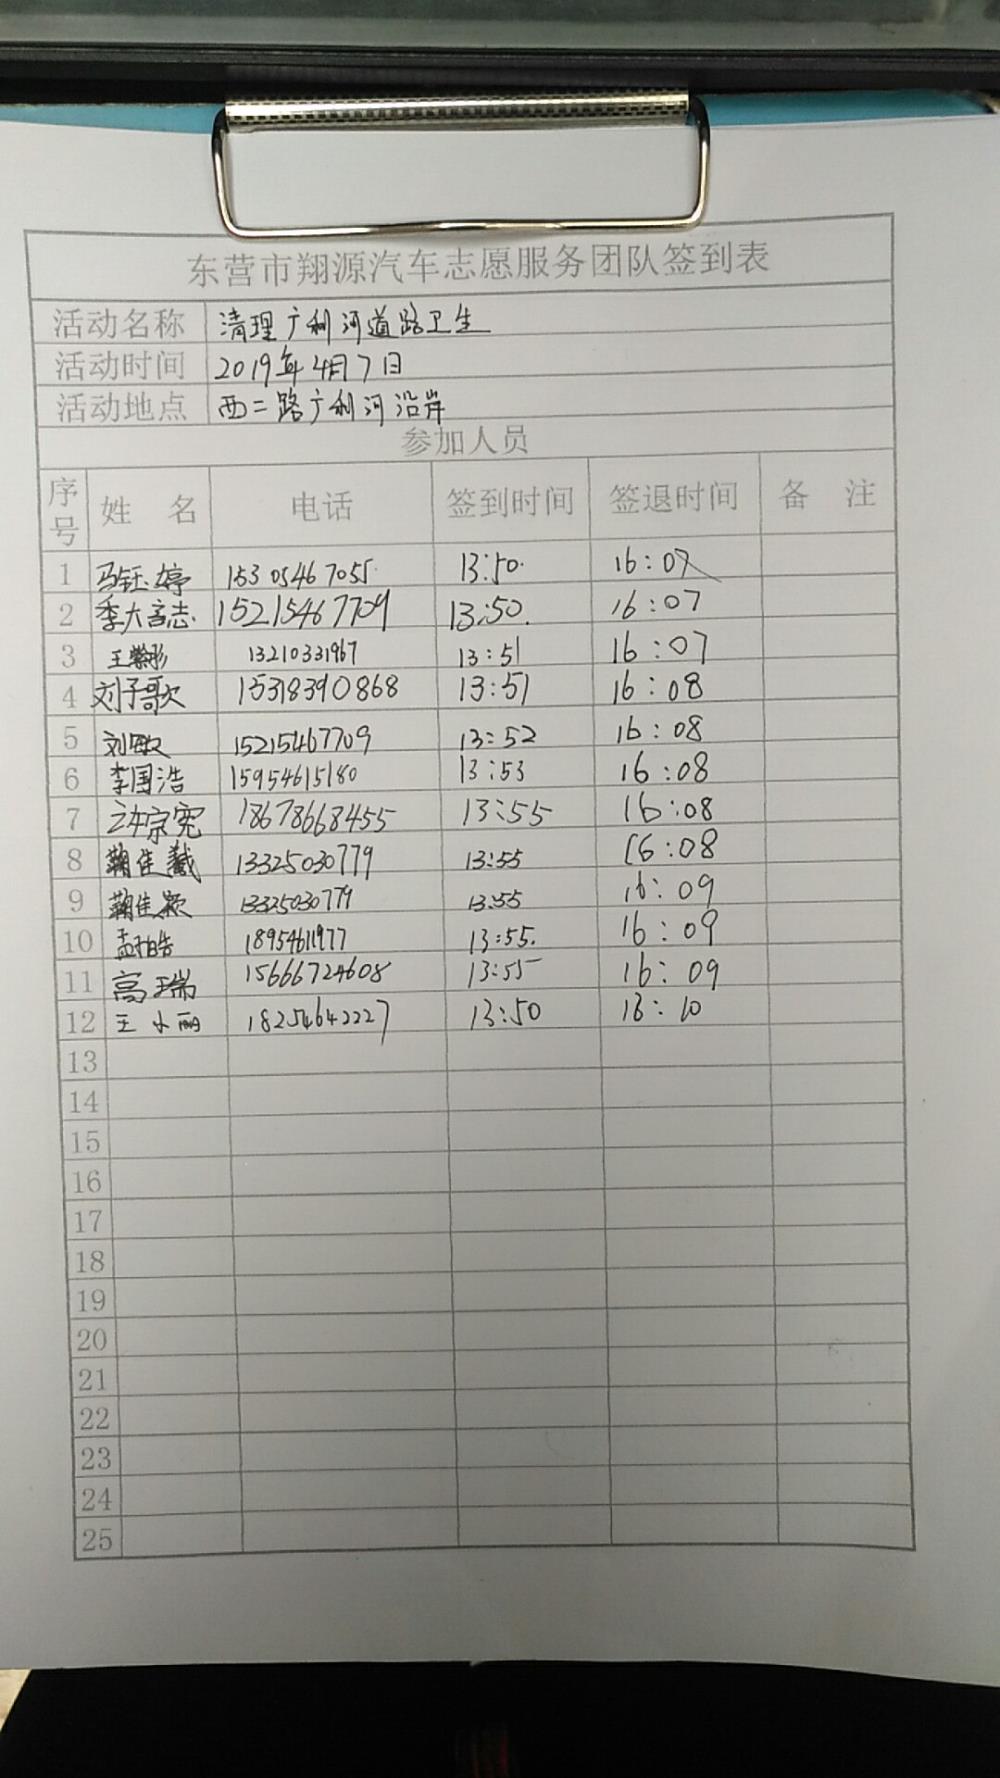 东营市翔源汽车志愿服务团队签到表
活动名称 清理广利河道路卫生
活动时间 2019年4月7日
活动地点 西二路广利河沿岸
参加人员
序号 姓 名 电话 签到时间 签退时间 备 注
1 马钰婷 15305467055 13:50 16:07
2 季大志 15215467709 13:50 16:07
3 王紫彤 13210331967 13:51 16:07
4 刘子歌 15318390868 13:51 16:08
5 刘敏 15215467709 13:52 16:08
6 李国浩 15954615180 13:53 16:08
7 许宗宪 18678668455 13:55 16:08
8 鞠佳 13325030779 13:55 16:08
9 鞠佳颖 13325030779 13:55 16:09
10 孟柏皓 18954611977 13:55 16:09
11 高瑞 15666724608 13:55 16:09
12 王小丽 18254642227 13:50 16:10
13
14
15
16
17
18
19
20
21
22
23
24
25